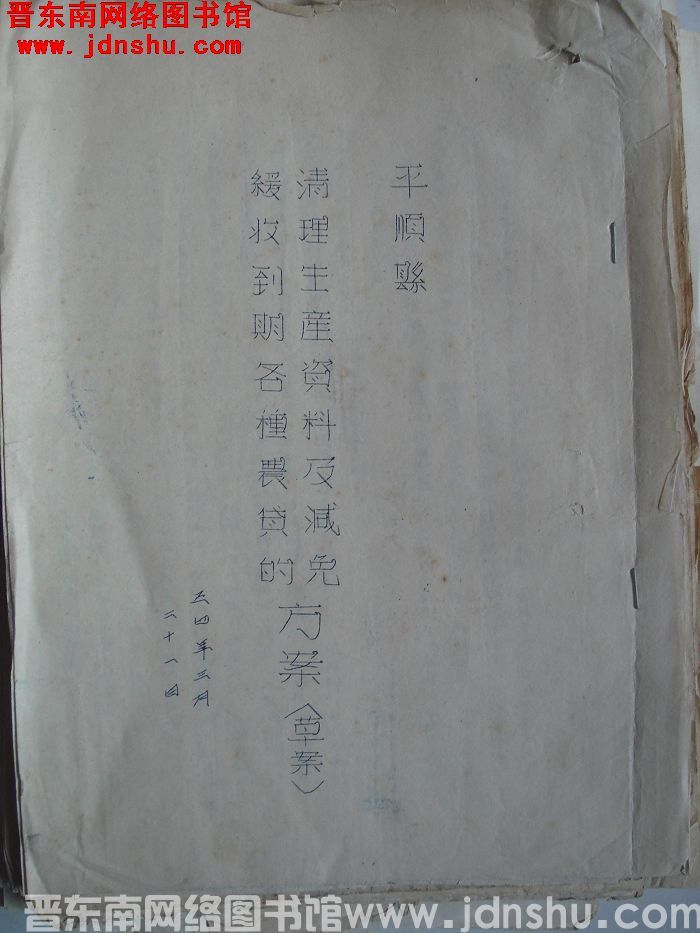 晋东南网络图书馆
www.jdnshu.com
平順縣
清理生産資料及減免
緩收到期各種農貸的
方案（草案）
五四年三月
二十一日
晋东南网络图书馆www.jdnshu.com